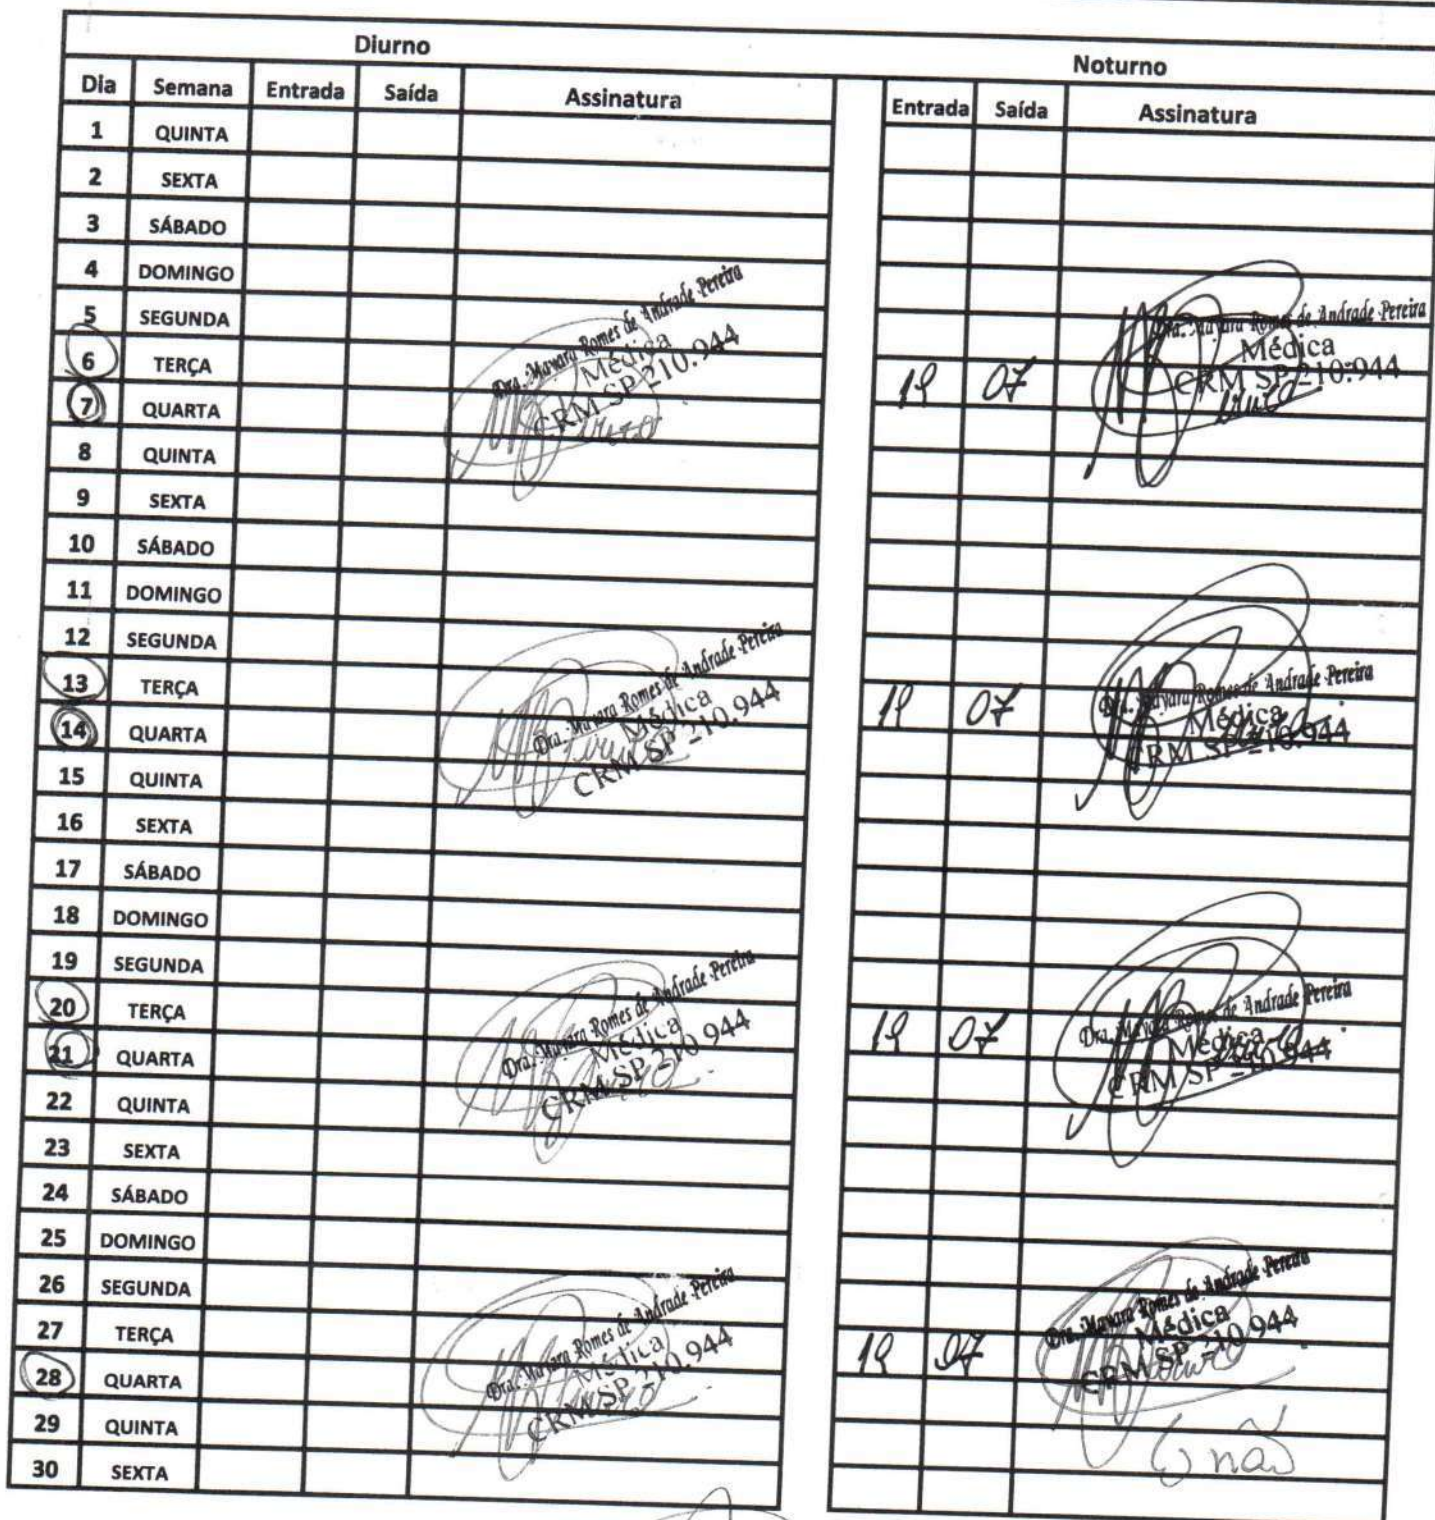 Diurno Noturno
Dia Semana Entrada Saída Assinatura Entrada Saída Assinatura
1 QUINTA
2 SEXTA
3 SÁBADO
4 DOMINGO
5 SEGUNDA
6 TERÇA
Dra. Mayara Romes de Andrade Pereira
Médica
CRM SP 210.944
19 07
Dra. Mayara Romes de Andrade Pereira
Médica
CRM SP 210.944
7 QUARTA
8 QUINTA
9 SEXTA
10 SÁBADO
11 DOMINGO
12 SEGUNDA
13 TERÇA
Dra. Mayara Romes de Andrade Pereira
Médica
CRM SP 210.944
19 07
Dra. Mayara Romes de Andrade Pereira
Médica
CRM SP 210.944
14 QUARTA
15 QUINTA
16 SEXTA
17 SÁBADO
18 DOMINGO
19 SEGUNDA
20 TERÇA
Dra. Mayara Romes de Andrade Pereira
Médica
CRM SP 210.944
19 07
Dra. Mayara Romes de Andrade Pereira
Médica
CRM SP 210.944
21 QUARTA
22 QUINTA
23 SEXTA
24 SÁBADO
25 DOMINGO
26 SEGUNDA
27 TERÇA
Dra. Mayara Romes de Andrade Pereira
Médica
CRM SP 210.944
19 07
Dra. Mayara Romes de Andrade Pereira
Médica
CRM SP 210.944
28 QUARTA
29 QUINTA
não
30 SEXTA